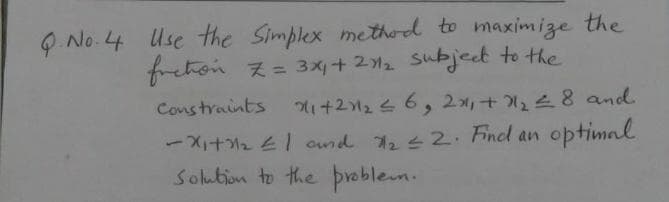 Q.No.4 Use the Simplex method to maximize the
fnction Z = 3x₁ + 2x₂ subject to the
Constraints x₁+2x₂ ≤ 6, 2x₁ + x₂ ≤ 8 and
-x₁+x₂ ≤ 1 and x₂ ≤ 2. Find an optimal
Solution to the problem.